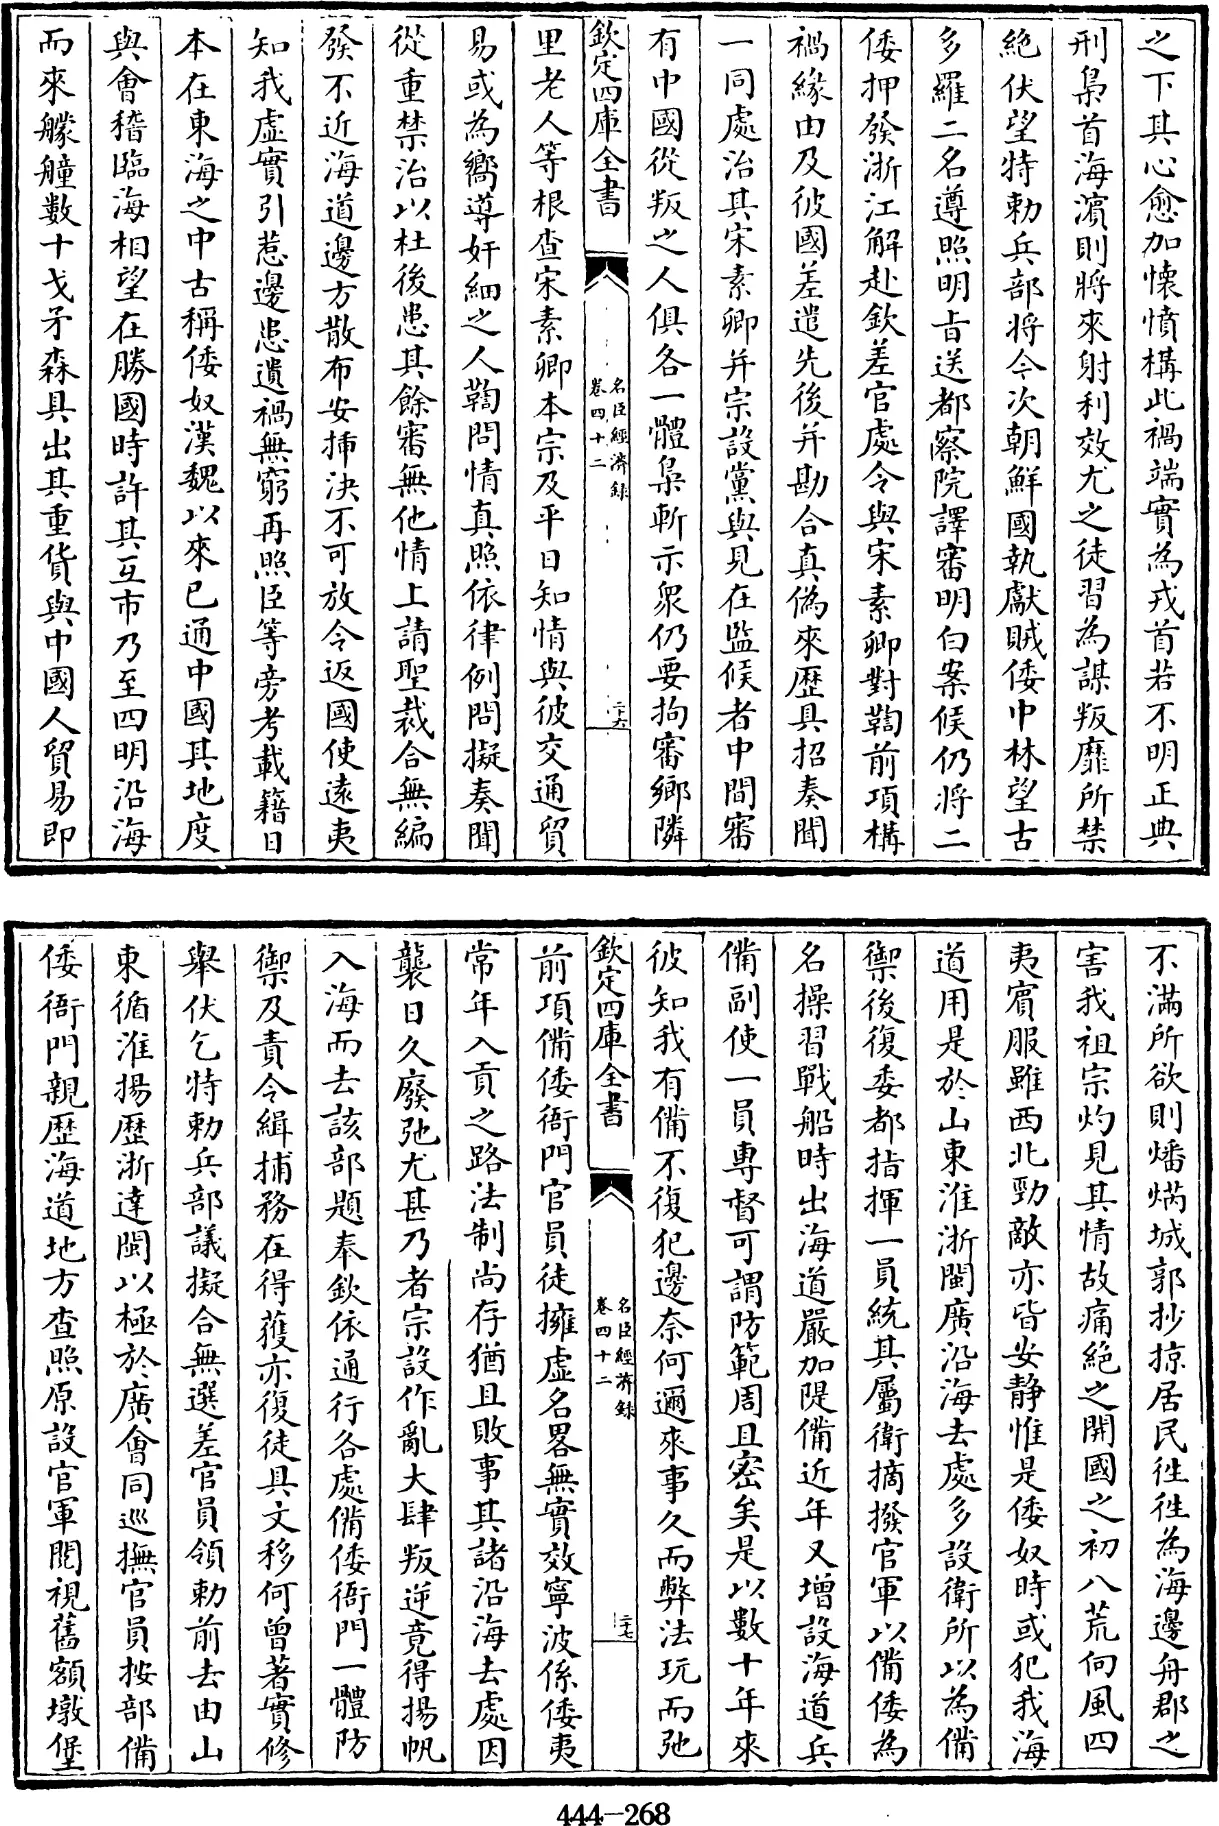 之下其心愈加懐憤構此禍端實為戎首若不明正典
刑梟首海濵則將來射利效尤之徒習為謀叛靡所禁
絶伏望特勅兵部将今次朝鮮國執獻賊倭中林望古
多羅二名遵照明旨送都察院譯審明白案候仍将二
倭押發浙江解赴欽差官處令與宋素卿對鞫前項構
禍緣由及彼國差遣先後并勘合真偽來歴具招奏聞
一同處治其宋素卿并宗設黨與見在監候者中間審
有中國從叛之人俱各一體梟斬示衆仍要拘審鄉隣
欽定四庫全書
名臣經濟録
卷四十二
二十六
里老人等根查宋素卿本宗及平日知情與彼交通貿
易或為嚮導奸細之人鞫問情真照依律例問擬奏聞
從重禁治以杜後患其餘審無他情上請聖裁合無編
發不近海道邊方散布安揷決不可放令返國使遠夷
知我虚實引惹邊患遺禍無窮再照臣等旁考載籍日
本在東海之中古稱倭奴漢魏以來已通中國其地度
與會稽臨海相望在勝國時許其互市乃至四明沿海
而來艨艟數十戈矛森具出其重貨與中國人貿易即
不滿所欲則燔焫城郭抄掠居民徃徃為海邊舟郡之
害我祖宗灼見其情故痛絶之開國之初八荒向風四
夷賓服雖西北勁敵亦皆安静惟是倭奴時或犯我海
道用是於山東淮浙閩廣沿海去處多設衛所以為備
禦後復委都指揮一員統其屬衛摘撥官軍以備倭為
名操習戰船時出海道嚴加隄備近年又增設海道兵
備副使一員專督可謂防範周且宻矣是以數十年來
彼知我有備不復犯邊奈何邇來事久而弊法玩而弛
欽定四庫全書
名臣經濟録
卷四十二
二十七
前項備倭衙門官員徒擁虚名畧無實效寧波係倭夷
常年入貢之路法制尚存猶且敗事其諸沿海去處因
襲日久廢弛尤甚乃者宗設作亂大肆叛逆竟得揚帆
入海而去該部題奉欽依通行各處備倭衙門一體防
禦及責令緝捕務在得獲亦復徒具文移何曾著實修
舉伏乞特勅兵部議擬合無選差官員領勅前去由山
東循淮揚歴浙達閩以極於廣會同廵撫官員按部備
倭衙門親歴海道地方查照原設官軍閲視舊額墩堡
444-268